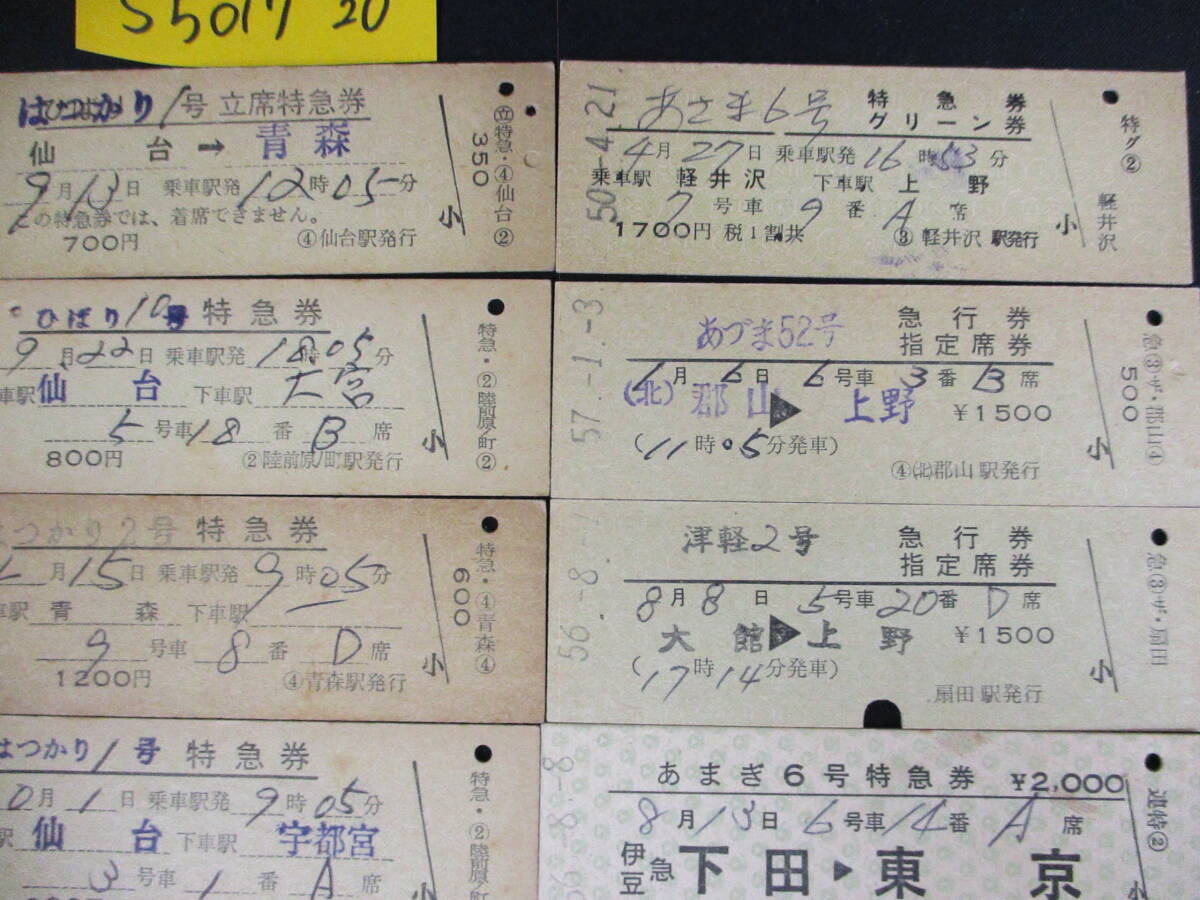 S5017 20
はつかり1号 立席特急券
仙台→青森
9月13日 乗車駅発12時05分
この特急券では、着席できません。
700円 ④仙台駅発行
小
350
㊢特急・④仙台②
ひばり10号 特急券
9月22日 乗車駅発18時05分
車駅 仙台 下車駅 大宮
5号車18番B席
800円 ②陸前原ノ町駅発行
小
特急・②陸前原ノ町②
はつかり2号 特急券
月15日 乗車駅発9時05分
車駅 青森 下車駅
9号車 8番 D席
1200円 ④青森駅発行
小
600
特急・④青森④
はつかり1号 特急券
0月1日 乗車駅発9時05分
駅 仙台 下車駅 宇都宮
3号車 1番 A席
小
特急・②陸前原ノ町
50-4.21
あさま6号 特急券
グリーン券
4月27日 乗車駅発16時53分
乗車駅 軽井沢 下車駅 上野
7号車 9番 A席
1700円 税1割共 ③軽井沢駅発行
小
軽井沢
特グ②
57.-1.-3
あづま52号 急行券
指定席券
6月6日 6号車 3番B席
(北)郡山▶上野 ¥1500
(11時05分発車)
④㈰郡山駅発行
小
500
急③ザ・郡山④
56.-8.-1
津軽2号 急行券
指定席券
8月8日 5号車20番D席
大館▶上野 ¥1500
(17時14分発車)
扇田駅発行
小
急③ザ・扇田
56-8-8
あまぎ6号特急券 ¥2,000
8月13日 6号車14番A席
伊豆急下田▶東京
小
連特②